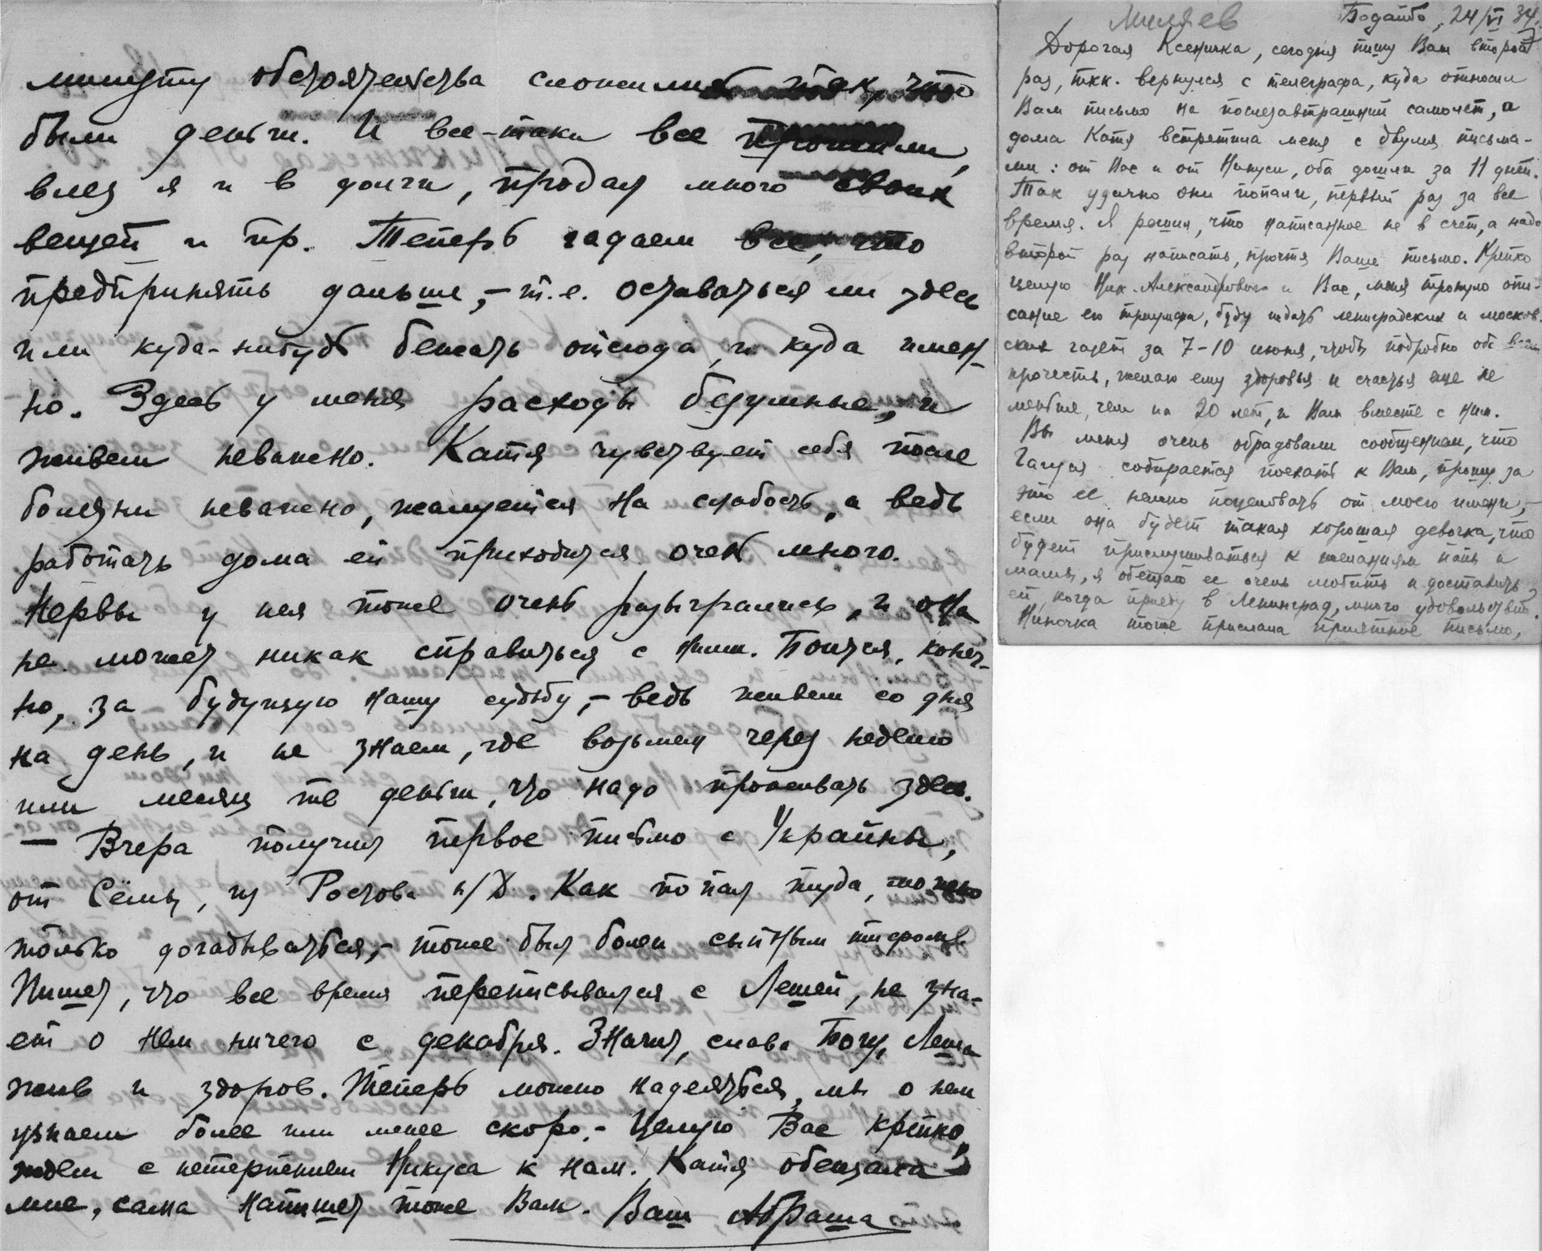 минуту обстоятельства сложились так, что
были деньги. И все-таки все прожили,
влез я и в долги, продал много своих
вещей и пр. Теперь гадаем все, что
предпринять дальше, – т.е. оставаться ли здесь
или куда-нибудь бежать отсюда, и куда имен-
но. Здесь у меня расходы безумные, и
живем неважно. Катя чувствует себя после
болезни неважно, жалуется на слабость, а ведь
работать дома ей приходится очень много.
Нервы у нея тоже очень разыгрались, и она
не может никак справиться с ними. Боится, конеч-
но, за будущую нашу судьбу, – ведь живем со дня
на день, и не знаем, где возьмем через неделю
или месяц те деньги, что надо проживать здесь.
— Вчера получил первое письмо с Украйны,
от Сёмы, из Ростова н/Д. Как попал туда, можно
только догадываться, – тоже был болен сыпным тифом.
Пишет, что все время переписывался с Лешей, не зна-
ет о нем ничего с декабря. Значит, слава Богу, Леша
жив и здоров. Теперь можно надеяться, мы о нем
узнаем более или менее скоро. – Целую Вас крепко,
ждем с нетерпением Никуса к нам. Катя обещала
мне, сама напишет тоже Вам. Ваш Абраша
Миляев
Бодайбо, 24/VI 34.
Дорогая Ксеничка, сегодня пишу Вам второй
раз, ткк. вернулся с телеграфа, куда относил
Вам письмо на послезавтрашний самолет, а
дома Катя встретила меня с двумя письма-
ми: от Вас и от Нинуси, оба дошли за 11 дней.
Так удачно они попали, первый раз за все
время. Я решил, что написанное не в счет, а надо
второй раз написать, прочтя Ваше письмо. Крепко
целую Ник. Александровича и Вас, меня тронуло опи-
сание его триумфа, буду ждать ленинградских и москов-
ских газет за 7-10 июня, чтобы подробно обо всем
прочесть, желаю ему здоровья и счастья еще не
меньше, чем на 20 лет, и Вам вместе с ним.
Вы меня очень обрадовали сообщением, что
Галуся собирается поехать к Вам, прошу за
это ее нежно поцеловать от моего имени, –
если она будет такая хорошая девочка, что
будет прислушиваться к желаниям папы и
мамы, я обещаю ее очень любить и доставить
ей, когда приеду в Ленинград, много удовольствий.
Ниночка тоже прислала приятное письмо,